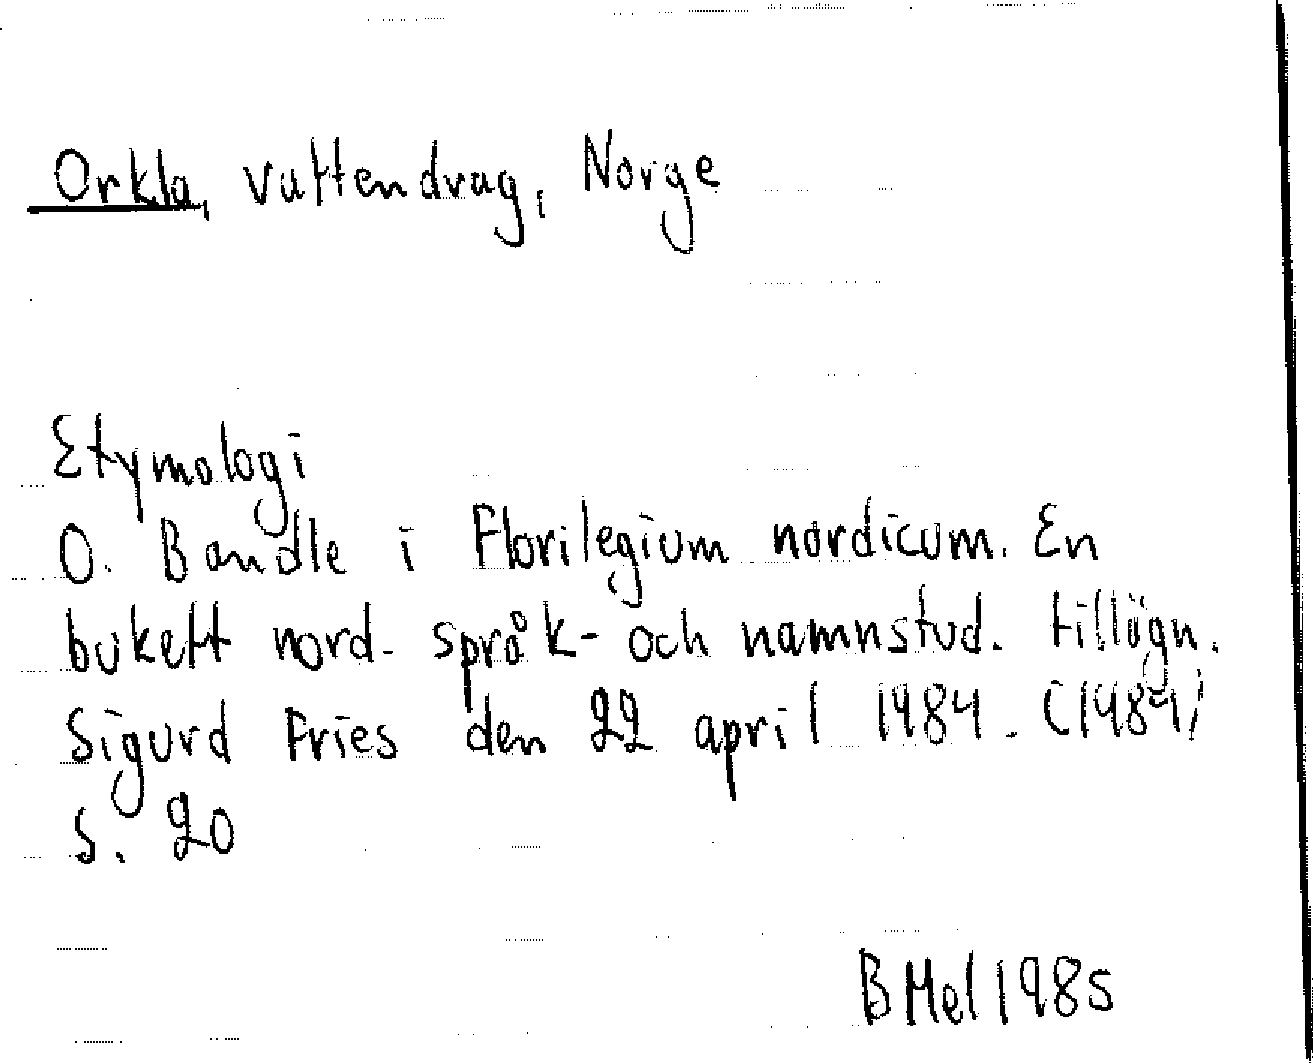 Orkla, vattendrag, Norge
Etymologi
O. Bandle i Florilegium nordicum. En
bukett nord. språk- och namnstud. tillägn.
Sigurd Fries den 22 april 1984. (1984)
S. 20
B Mel 1985